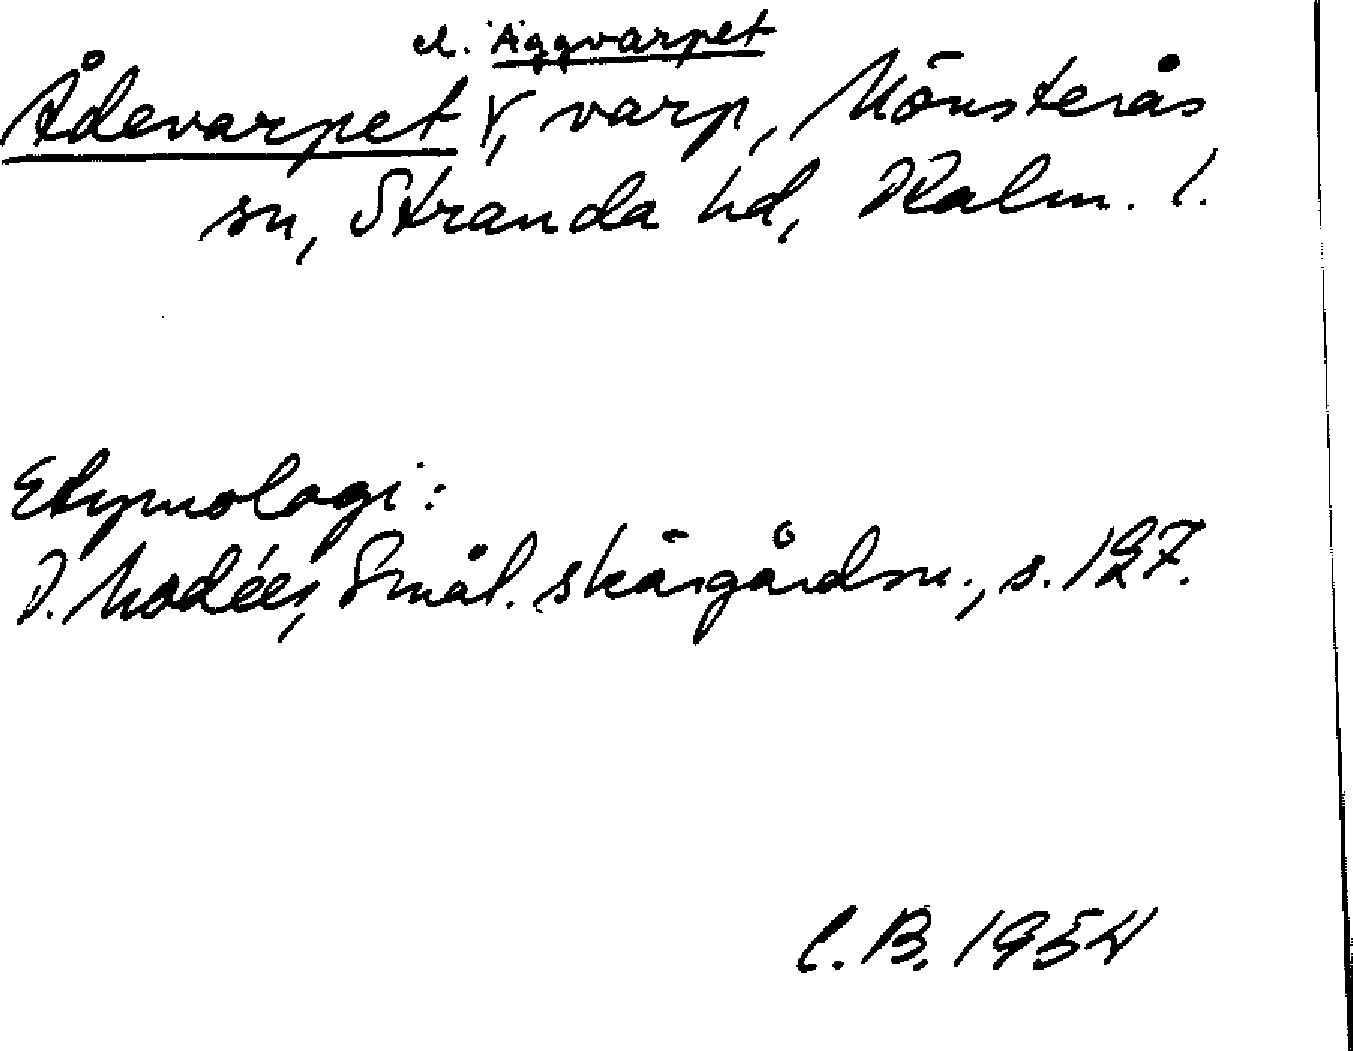 el. Äggvarpet
Ådevarpet, varp, Mönsterås
sn, Stranda hd, Kalm. l.
Etymologi:
I. Modéer, Smål. skärgårdsn., s. 127.
C. B. 1954